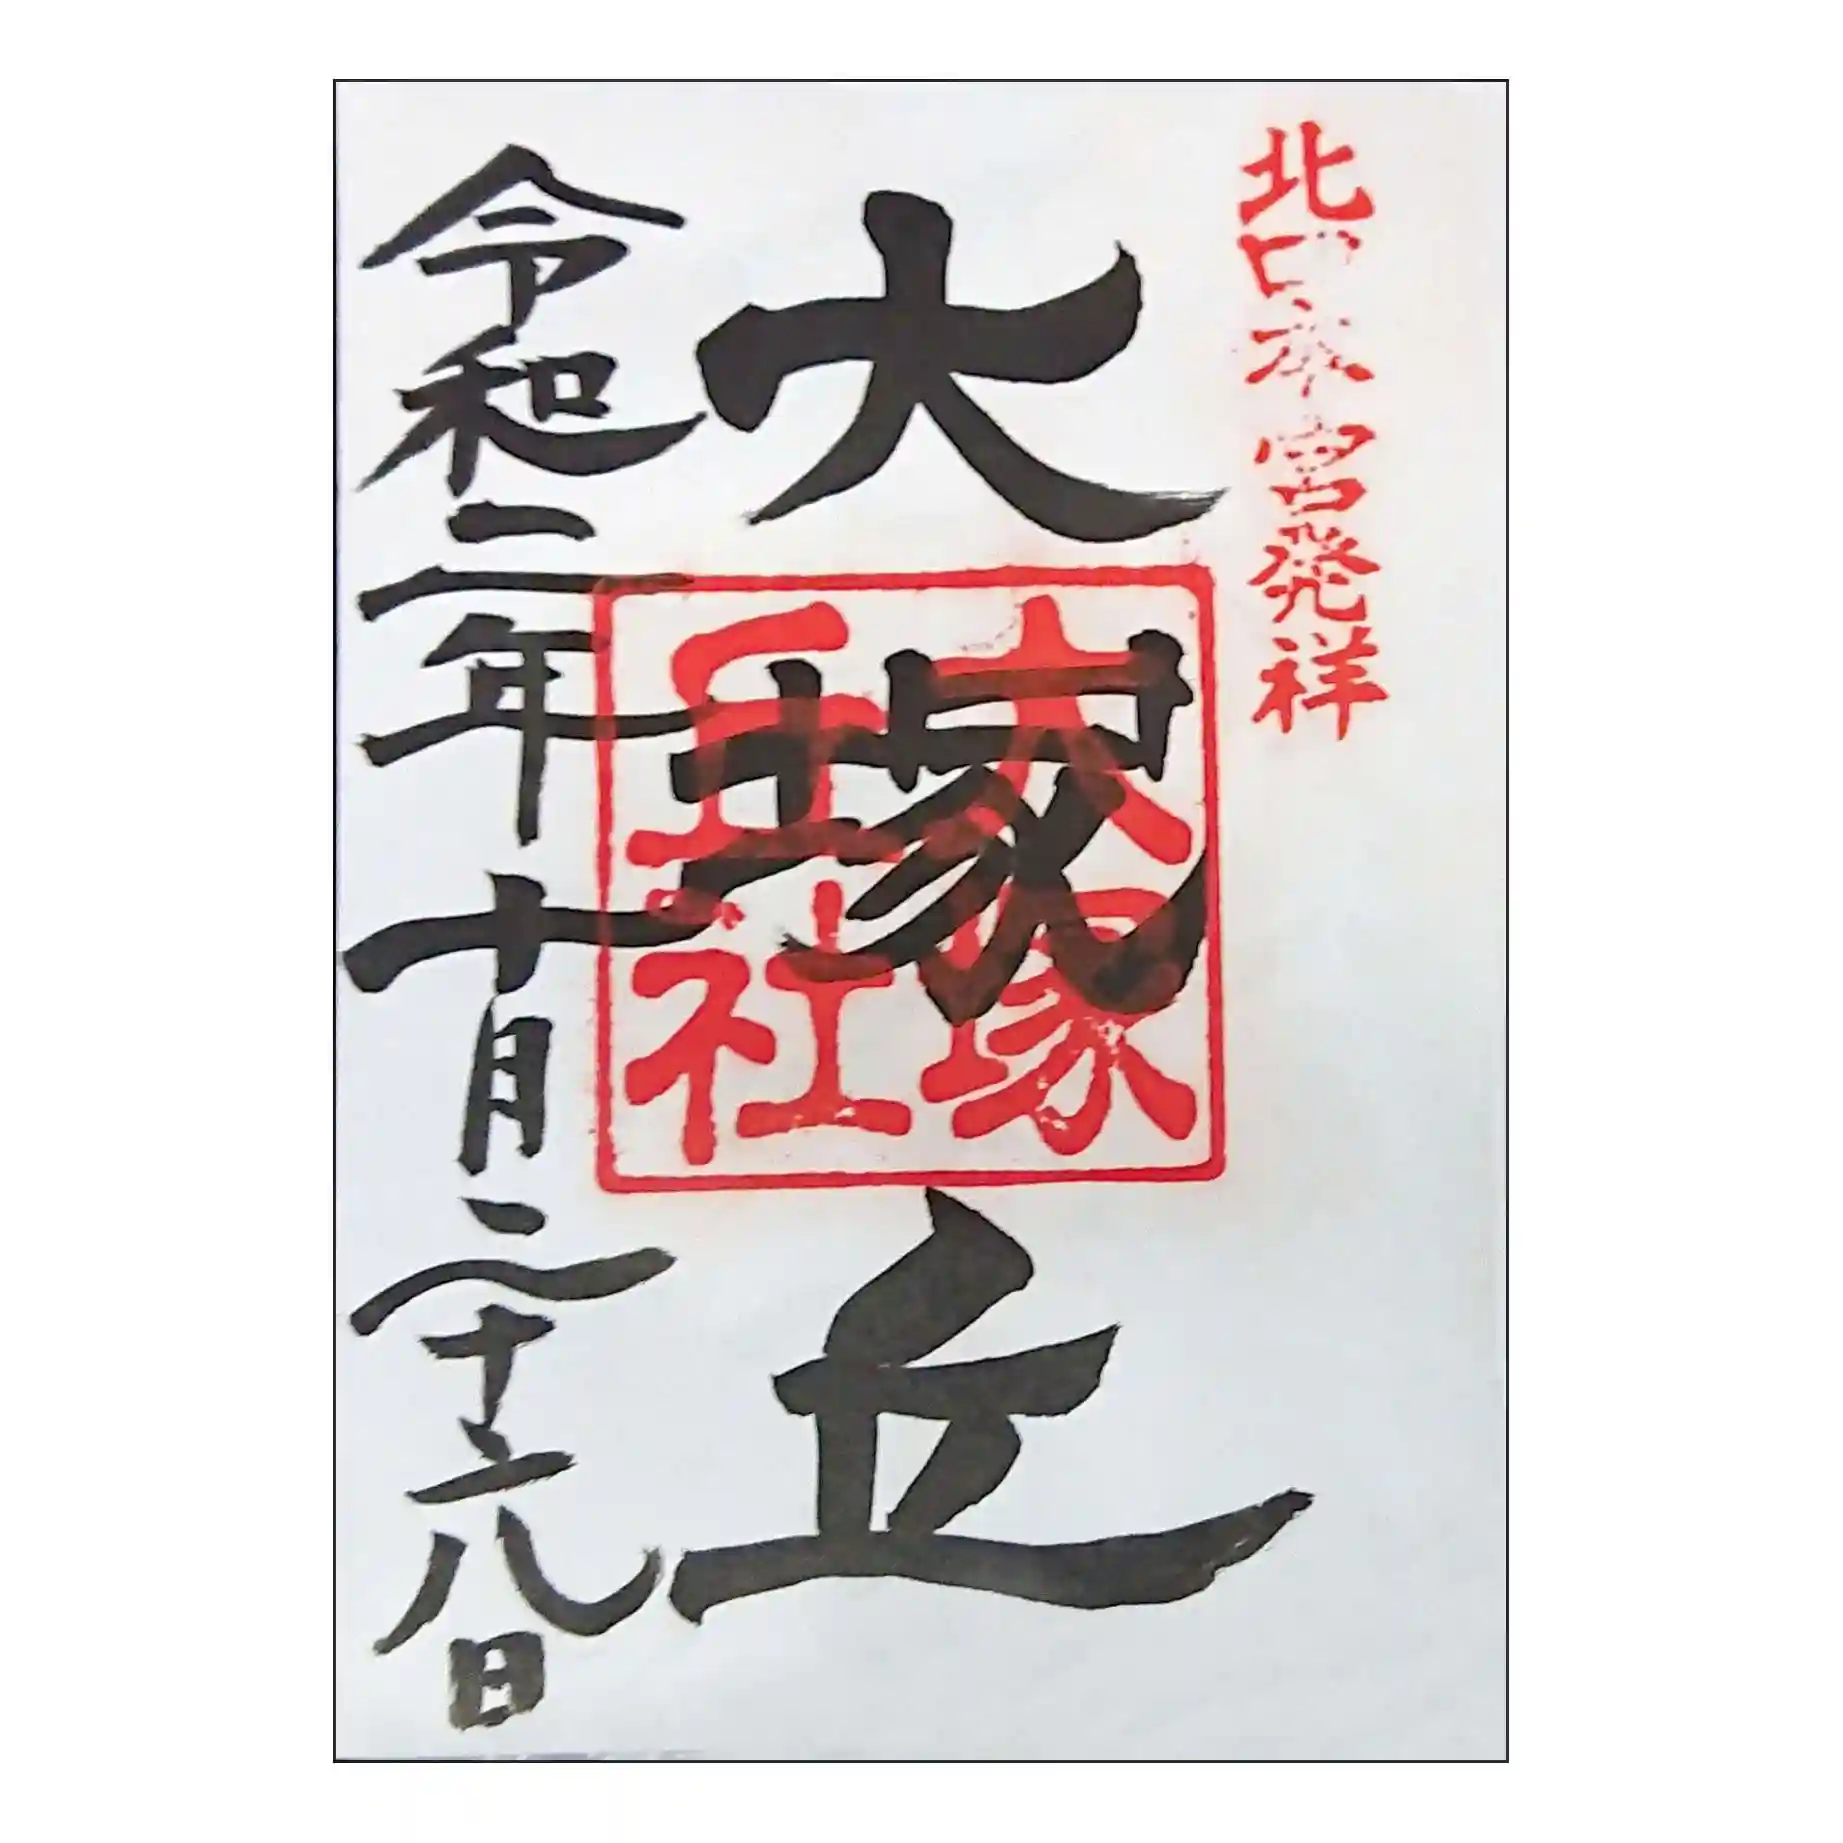 北口本宮発祥
大塚丘
大塚
丘社
令和二年十月二十六日